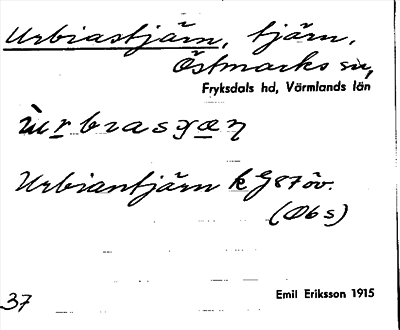 Urbiastjärn, tjärn,
Östmarks sn,
Fryksdals hd, Värmlands län
Urbiantjärn k G 87 öv.
(Obs)
Emil Eriksson 1915
37